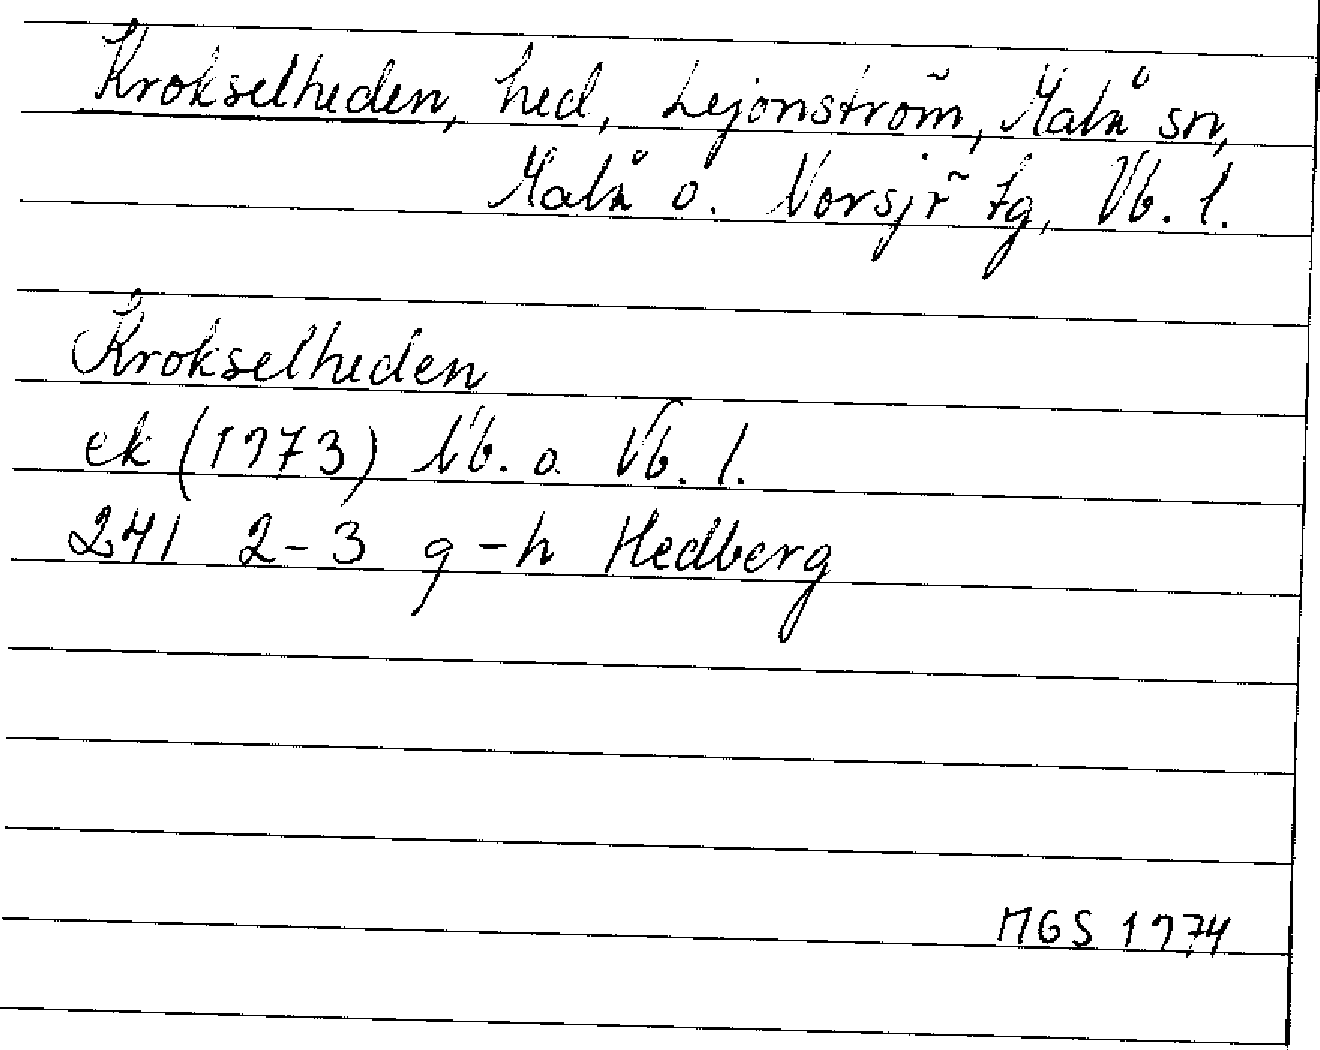 Krokselheden, hed, Lejonström, Malå sn,
Malå o. Norsjö tg, Vb. l.
Krokselheden
ek (1973) Nb. o Vb. l.
241 2-3 g-h Hedberg
MGS 1974